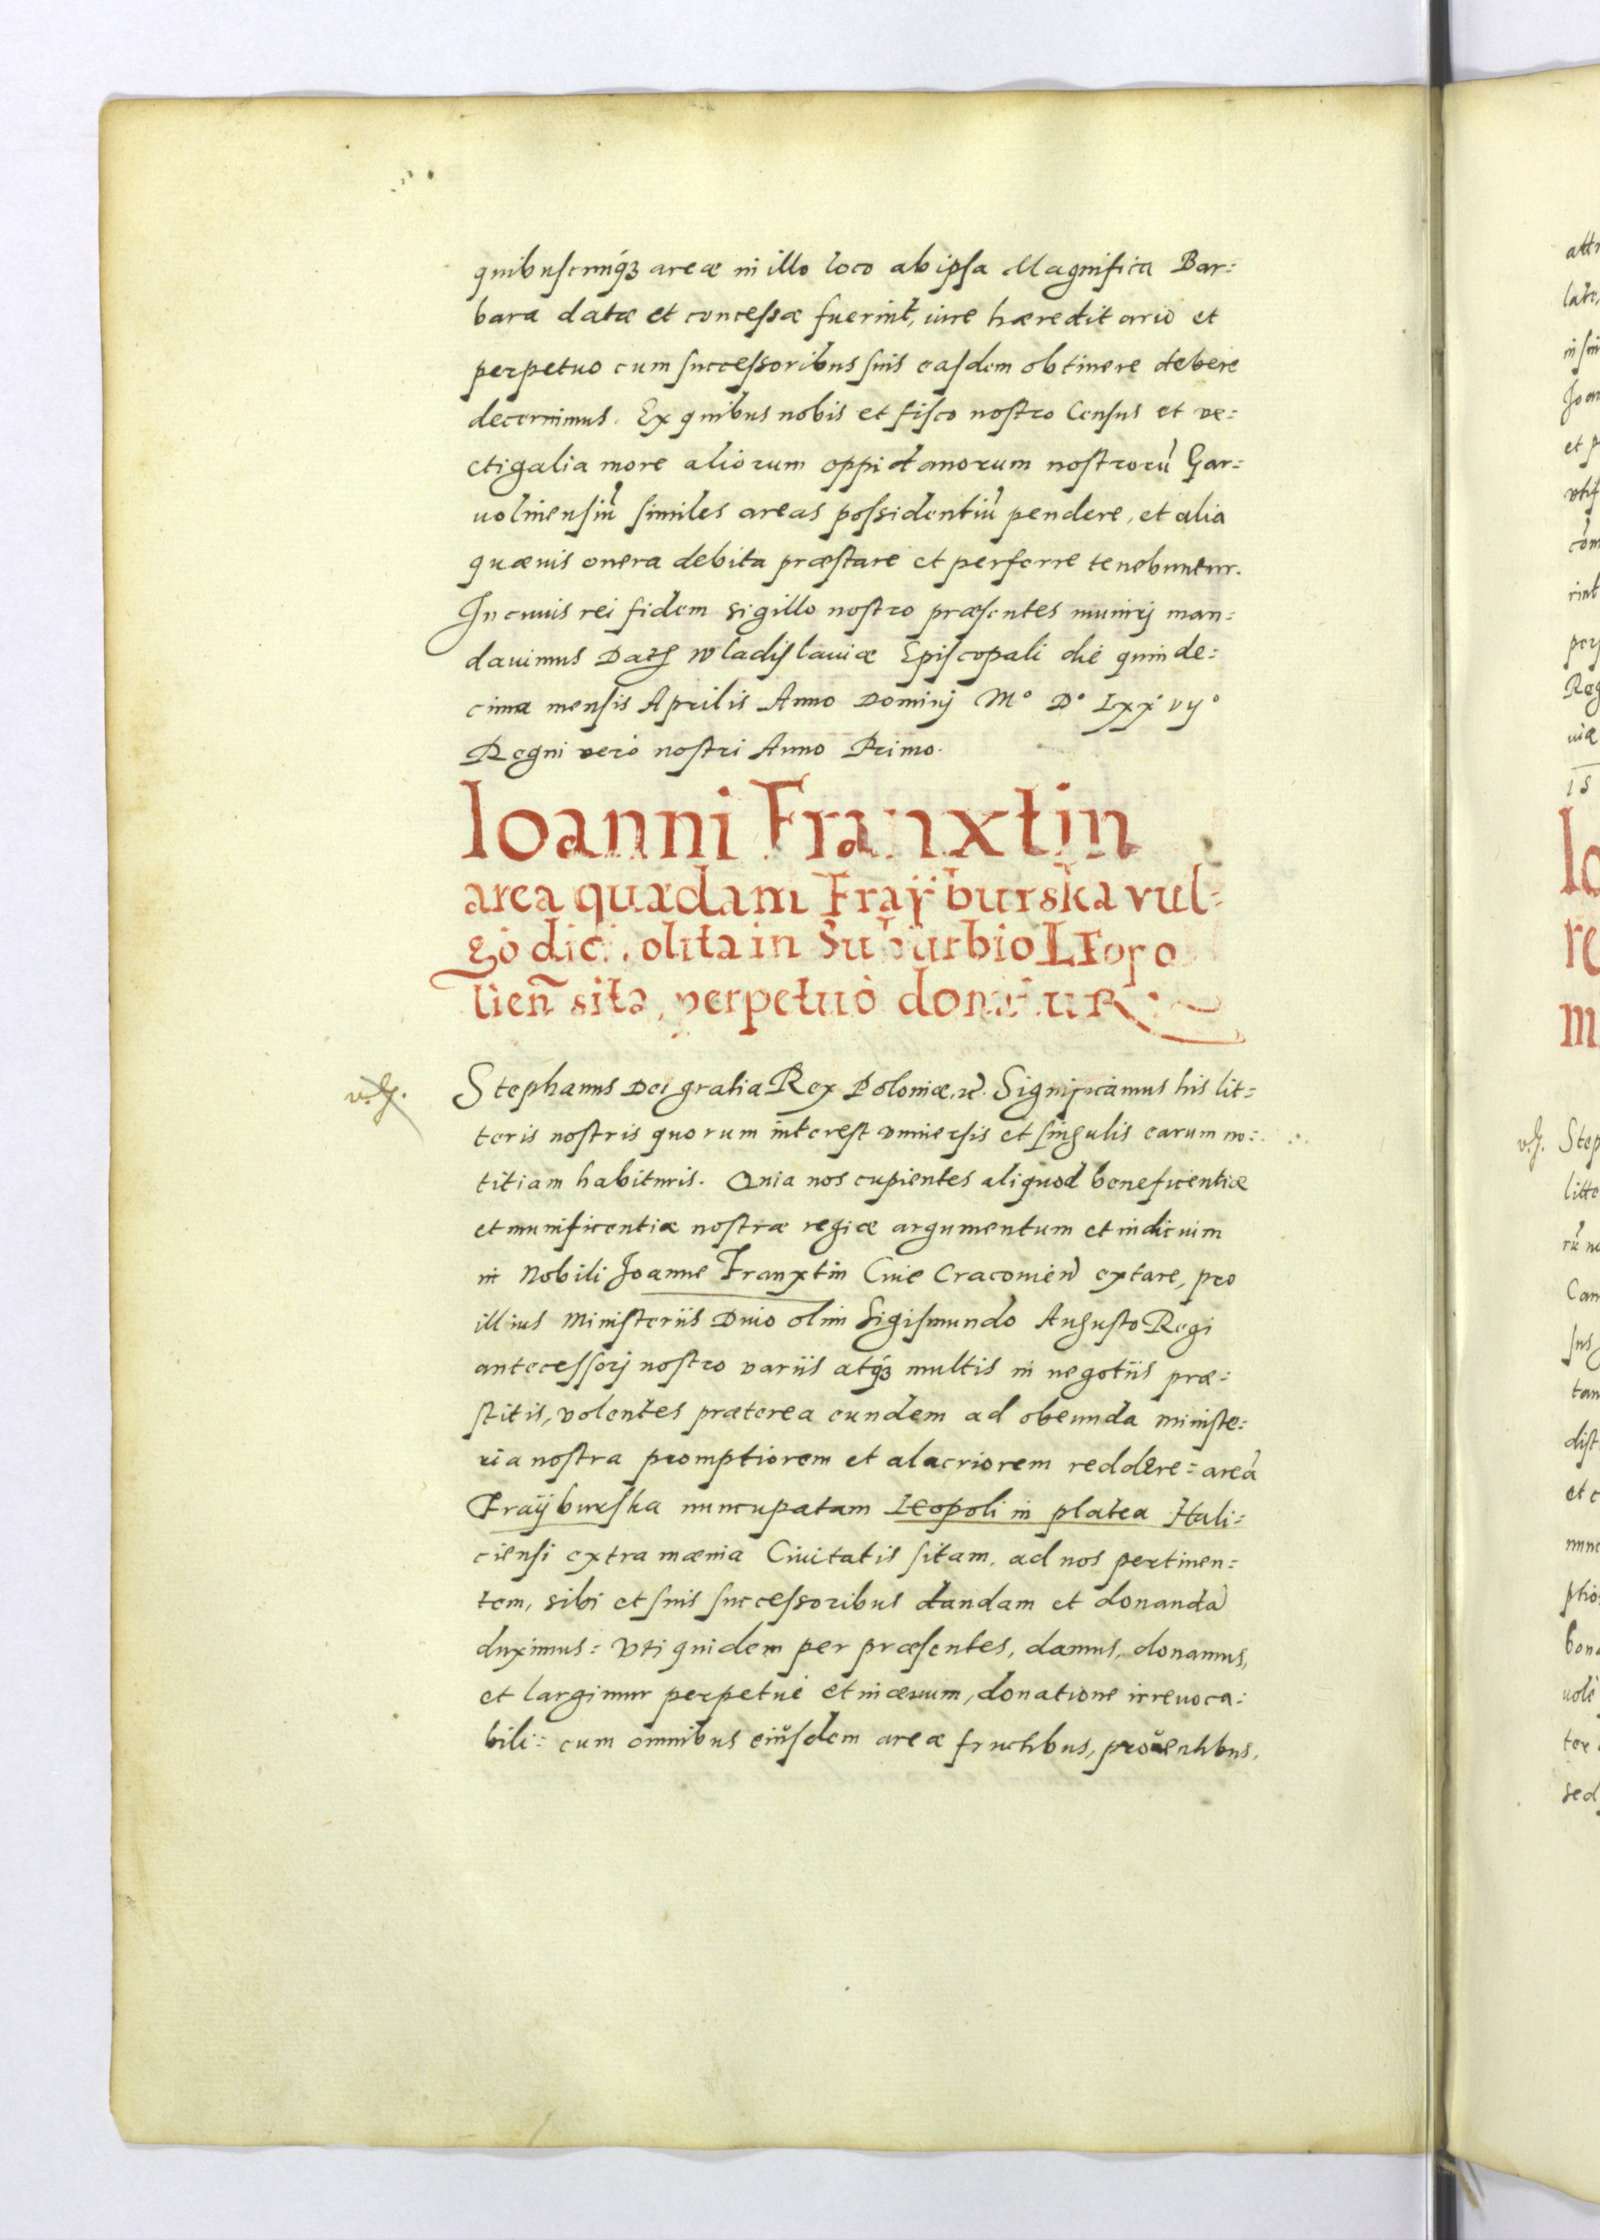 quibuscunq́ꝫ areæ in illo loco ab ipsa Magnifica Bar=
bara datæ et concessæ fuerint, iure hæreditario et
perpetuo cum successoribus suis easdem obtinere debere
decernimus. Ex quibus nobis et fisco nostro Census et ve=
ctigalia more aliorum oppidanorum nostrorū Gar=
uolinensiū similes areas possidentiū pendere, et alia
quæuis onera debita præstare et perferre tenebuntur.
In cuuis rei fidem sigillo nostro præsentes munirj man=
dauimus Datꝭ Wladislauiæ Episcopali die quinde=
cima mensis Aprilis Anno Dominj Mº Dº Lxxvijº
Regni verò nostri Anno Primo.
Ioanni Franxtin
area quædam Fraÿburska vul=
gò dici olita in Suburbio LEopo
lieñ sita, perpetuò donatuR
v.g. Stephanus Dei gratia Rex Poloniæ, etc. Significamus his lit=
teris nostris quorum interest vniuersis et singulis earum no=
titiam habituris. Quia nos cupientes aliquod beneficentiæ
et munificentiæ nostræ regiæ argumentum et indicium
in Nobili Joanne Franxtin Ciue Cracouien̄ extare, pro
illius Ministeriis Diuo olim Sigismundo Augusto Regi
antecessorj nostro variis atq́ꝫ multis in negotiis præ=
stitis, volentes præterea eundem ad obeunda ministe=
ria nostra promptiorem et alacriorem reddere = areā
Fraÿburska nuncupatam Leopoli in platea Hali=
ciensi extra mænia Ciuitatis sitam, ad nos pertinen=
tem, sibi et suis successoribus dandam et donandā
duximus = Vti quidem per præsentes, damus, donamus,
et largimur perpetuè et in æuum, donatione irreuoca=
bili = cum omnibus eiusdem areæ fructibus, prouentibus,